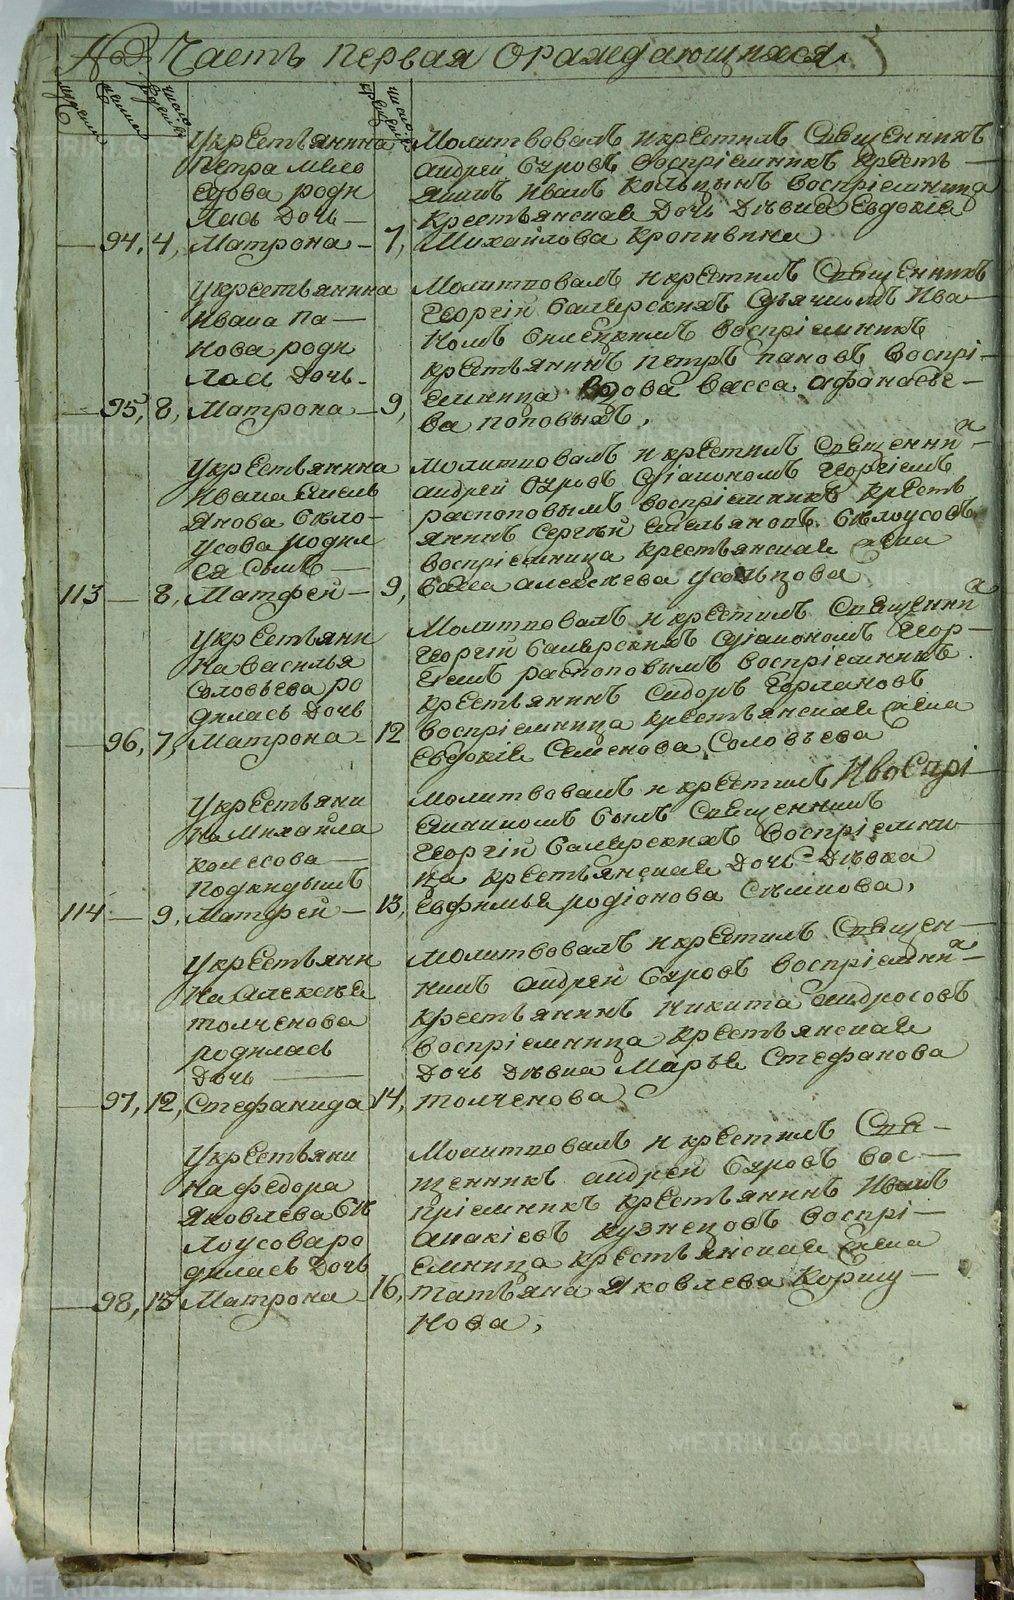 Часть первая Ораждающихся
мужеска
женска
число рожден
число крещен
Укрестьянина
Петра Меле
едова роди
лась Дочь —
94, 4, Матрона — 7,
Молитвовалъ икрестилъ Священникъ
андрей Буровъ воспрiемникъ крестъ —
янинъ иванъ Кольцынъ воспрiемница
крестьянская Дочь Дѣвка Евдокiя
Михайлова Кропивина
Укрестьянина
Ивана Па —
нова роди
лась Дочь -
95, 8, Матрона — 9,
Молитвовалъ икрестилъ Священникъ
Георгiй Сдьячкомъ Ива
номъ воспрiемникъ
крестьянинъ петръ пановъ воспрi-
емница вдова васса афанасье-
ва поповыхъ,
Укрестьянина
Ивана Емель
янова Бело-
усова родил
ся Сынъ —
113 — 8, Матфей — 9,
молитвовалъ икрестилъ Священни
андрей Буровъ Сдiакономъ Георгiемъ
распоповымъ воспрiемникъ крестъ
янинъ Сергѣй емельяновъ бѣлоусовъ
воспрiемница крестьянская жена
васса алексеева усольцова
Укрестьяни
на Василья
Соловьева ро
дилась Дочь
96, 7, Матрона - 12
Молитвовалъ икрестилъ Священни
Георгiй Сдiакономъ Геор-
гiемъ распоповымъ воспрiемникъ
крестьянинъ Сидоръ Горлановъ
воспрiемница крестьянская жена
евдокiя Семенова Соловьева
Укрестьяни
на Михайла
колесова —
подкидышъ
114 — 9, Матфей — 13,
Молитвовалъ икрестилъ Ивоспрi
емникомъ былъ Священникъ
Георгiй воспрiемни
ца крестьянская Дочь Дѣвка
Евфимья родiонова Сѣлкова,
Укрестьяни
на алексея
толченова
родилась
Дочь —
97, 12, Стефанида 14,
Молитвовалъ икрестилъ Священ-
никъ андрей Буровъ воспрiемни
крестьянинъ Никита андросовъ
воспрiемница крестьянская
Дочь Дѣвка Марья Стефанова
толченова
Укрестьяни
на федора
Яковлева бѣ
лоусова ро
дилась Дочь
98, 13 Матрона 16,
Молитвовалъ икрестилъ Свя-
щенникъ андрей Буровъ вос-
прiемникъ крестьянинъ Иванъ
анакiевъ кузнецовъ воспрi-
емница крестьянская жена
татьяна Яковлева Коршу-
нова,
METRIKI.GASO-URAL.RU